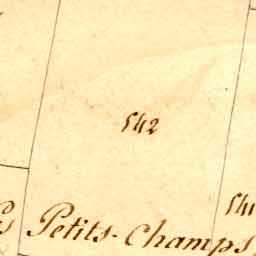 542
541
Petits-Champs